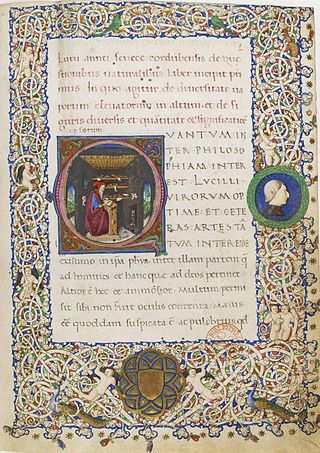 Lucii annei Senece cordubensis de que
stionibus naturalibus liber incipit pri
mus In quo agitur de diversitate va
porum elevatorum in altum et de fi
guris diversis et quantitate et significatio
ne ipsorum
QUANTUM IN
TER PHILOSO
PHIAM INTER
EST LUCILLI
VIRORUM OP
TIME ET CETE
RAS ARTES TA
TUM INTERESSE
existimo in ipa phya inter illam partem q
ad homines et hanc que ad deos pertinet
Altior est hec et animosior Multum permi
sit sibi non fuit oculis contenta Maius
esse quoddam suspicata est ac pulchrius qd